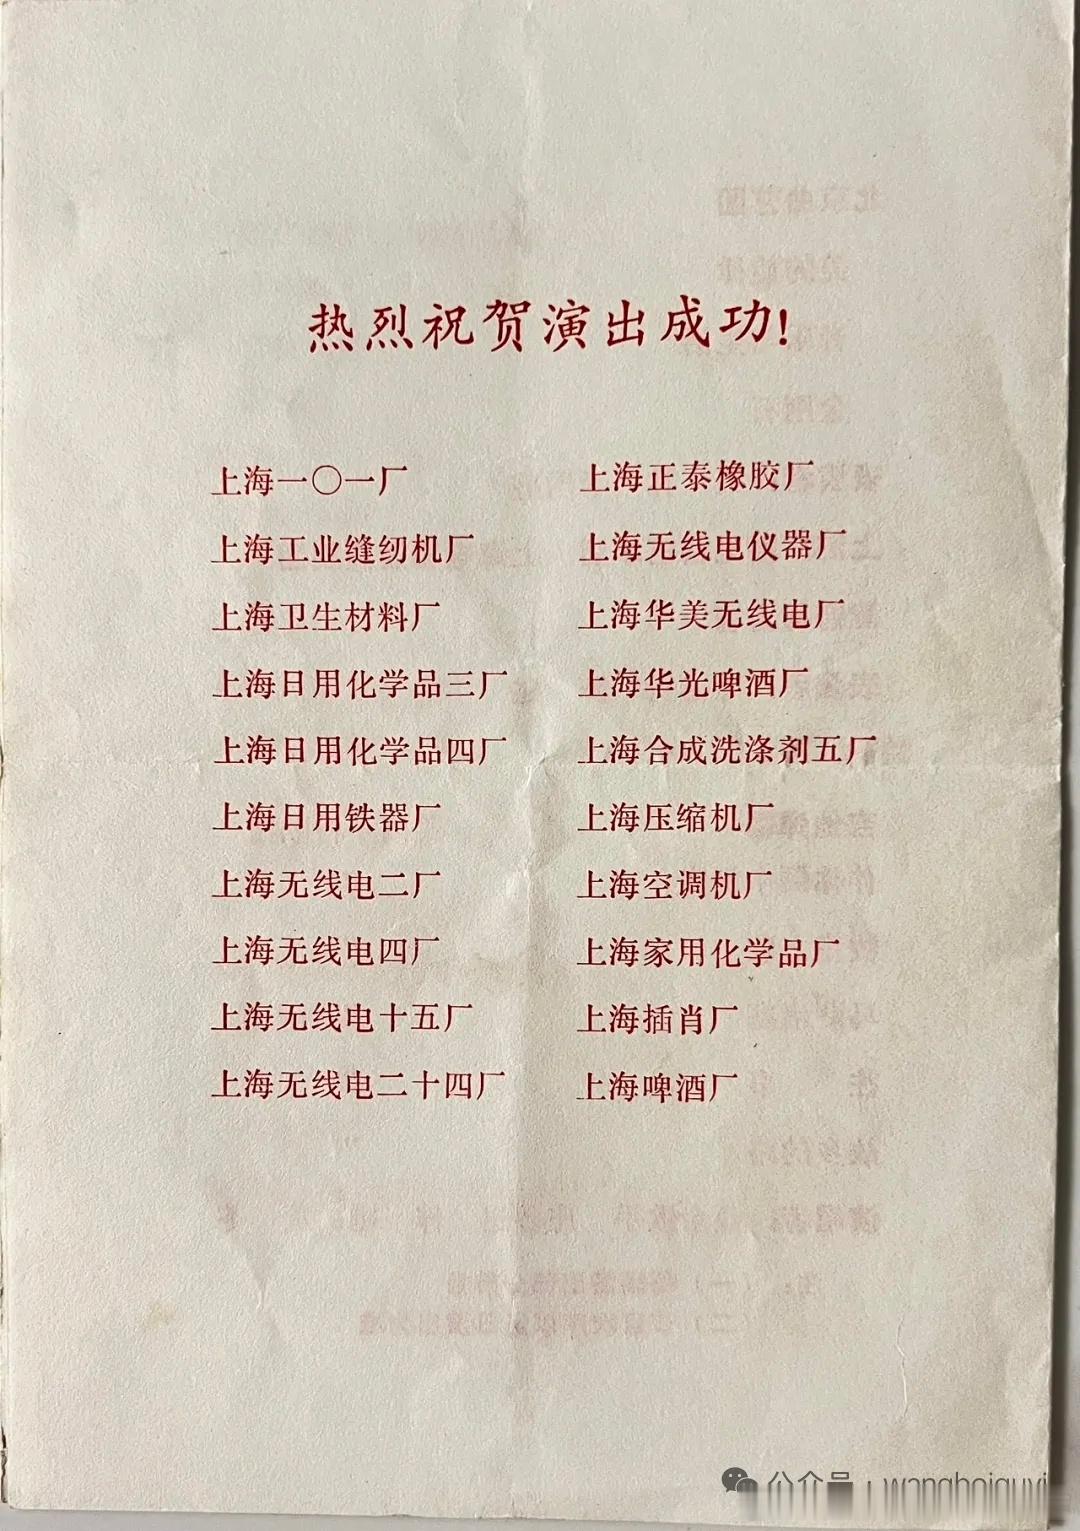 热烈祝贺演出成功！
上海一〇一厂
上海工业缝纫机厂
上海卫生材料厂
上海日用化学品三厂
上海日用化学品四厂
上海日用铁器厂
上海无线电二厂
上海无线电四厂
上海无线电十五厂
上海无线电二十四厂
上海正泰橡胶厂
上海无线电仪器厂
上海华美无线电厂
上海华光啤酒厂
上海合成洗涤剂五厂
上海压缩机厂
上海空调机厂
上海家用化学品厂
上海插肖厂
上海啤酒厂
公众号